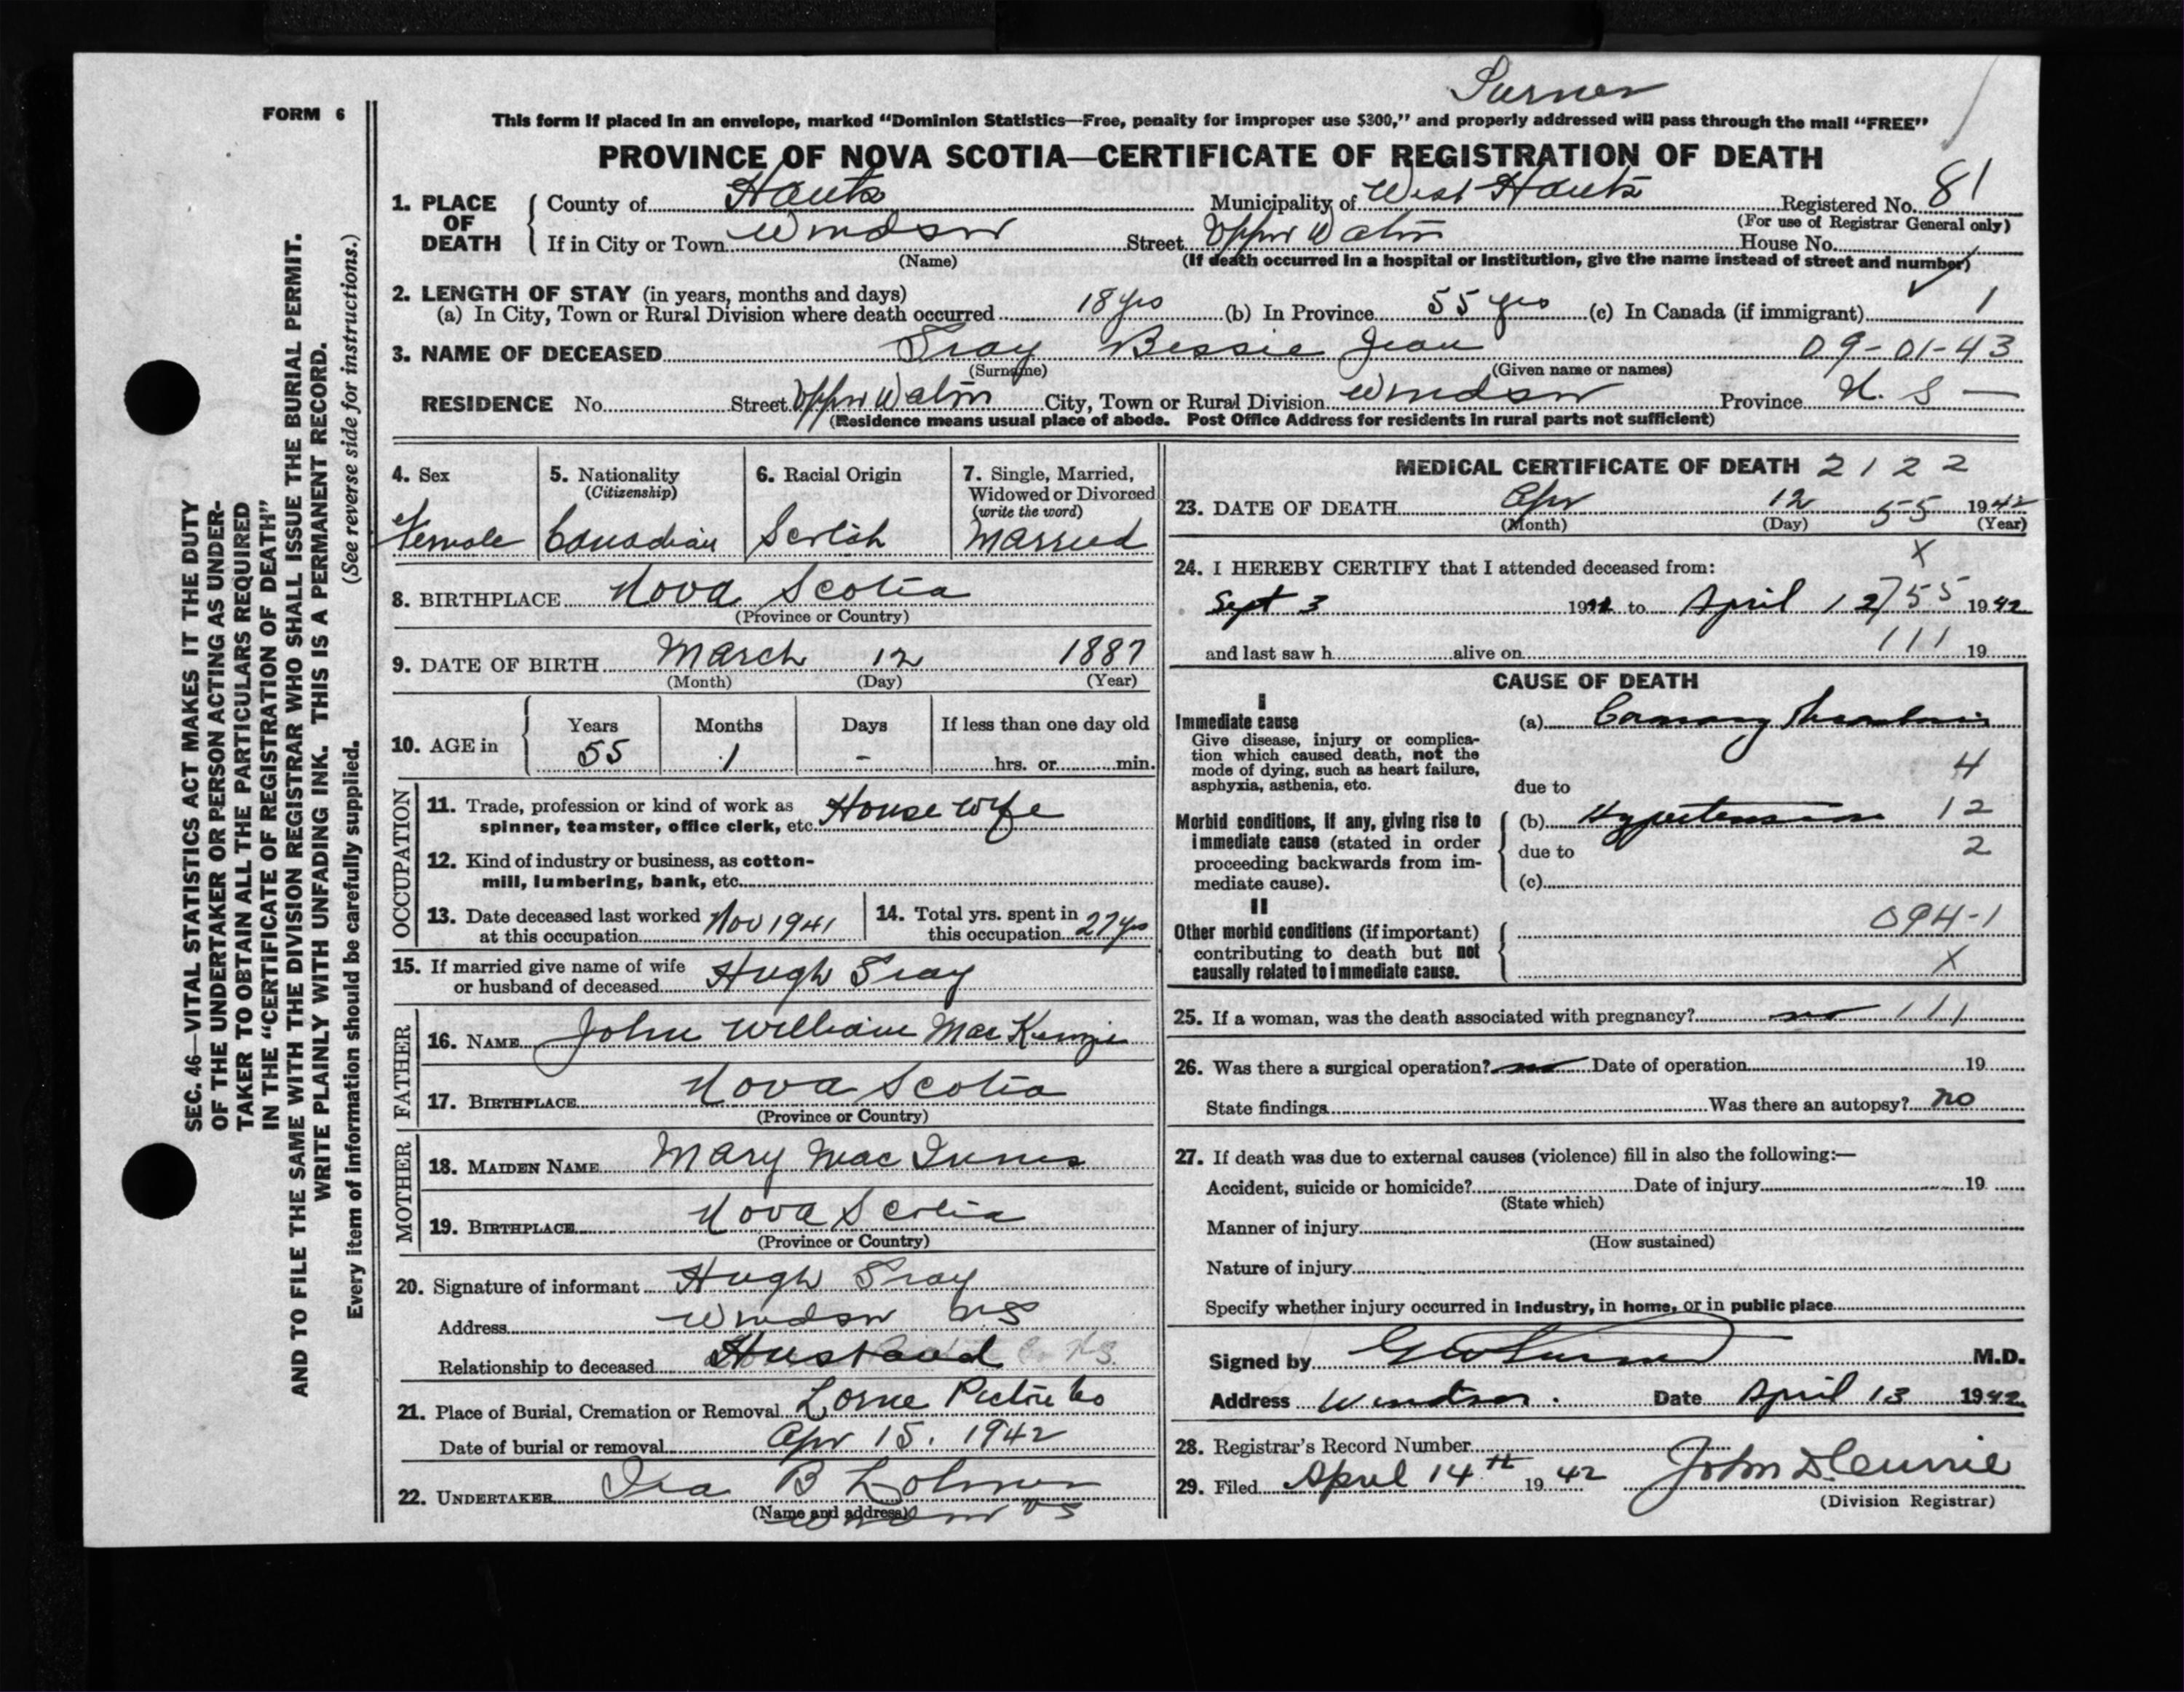 Turner
FORM 6
This form if placed in an envelope, marked "Dominion Statistics—Free, penalty for improper use $300," and properly addressed will pass through the mail "FREE"
PROVINCE OF NOVA SCOTIA—CERTIFICATE OF REGISTRATION OF DEATH
1. PLACE OF DEATH { County of Hants Municipality of West Hants Registered No. 81
(For use of Registrar General only)
If in City or Town Windsor Street Upper Water House No.
(Name) (If death occurred in a hospital or institution, give the name instead of street and number)
2. LENGTH OF STAY (in years, months and days)
(a) In City, Town or Rural Division where death occurred 18 yrs (b) In Province 55 yrs (c) In Canada (if immigrant) 1
3. NAME OF DECEASED Gray Bessie Jean 09-01-43
(Surname) (Given name or names)
RESIDENCE No. Street Upper Water City, Town or Rural Division Windsor Province N. S —
(Residence means usual place of abode. Post Office Address for residents in rural parts not sufficient)
4. Sex
Female
5. Nationality
(Citizenship)
Canadian
6. Racial Origin
Scotch
7. Single, Married,
Widowed or Divorced
(write the word)
Married
8. BIRTHPLACE Nova Scotia
(Province or Country)
9. DATE OF BIRTH March 12 1887
(Month) (Day) (Year)
10. AGE in { Years Months Days If less than one day old
55 1 - hrs. or min.
OCCUPATION
11. Trade, profession or kind of work as
spinner, teamster, office clerk, etc. House wife
12. Kind of industry or business, as cotton-
mill, lumbering, bank, etc.
13. Date deceased last worked
at this occupation Nov 1941
14. Total yrs. spent in
this occupation 27 yrs
15. If married give name of wife
or husband of deceased Hugh Gray
FATHER
16. NAME John William MacKenzie
17. BIRTHPLACE Nova Scotia
(Province or Country)
MOTHER
18. MAIDEN NAME Mary MacInnis
19. BIRTHPLACE Nova Scotia
(Province or Country)
20. Signature of informant Hugh Gray
Address Windsor NS
Relationship to deceased Husband
21. Place of Burial, Cremation or Removal Lorne Pictou Co
Date of burial or removal Apr 15. 1942
22. UNDERTAKER Ira B
(Name and address) Windsor NS
MEDICAL CERTIFICATE OF DEATH 2122
23. DATE OF DEATH Apr 12 55 1942
(Month) (Day) (Year)
X
24. I HEREBY CERTIFY that I attended deceased from:
Sept 3 1941 to April 12 755 1942
and last saw h alive on 111 19
CAUSE OF DEATH
I
Immediate cause
Give disease, injury or complica-
tion which caused death, not the
mode of dying, such as heart failure,
asphyxia, asthenia, etc.
(a) Coronary Thrombosis
4
due to
Morbid conditions, if any, giving rise to
immediate cause (stated in order
proceeding backwards from im-
mediate cause).
(b) Hypertension 12
due to 2
(c)
II
Other morbid conditions (if important)
contributing to death but not
causally related to immediate cause.
094-1
X
25. If a woman, was the death associated with pregnancy? no 111
26. Was there a surgical operation? no Date of operation 19
State findings Was there an autopsy? no
27. If death was due to external causes (violence) fill in also the following:—
Accident, suicide or homicide? Date of injury 19
(State which)
Manner of injury
(How sustained)
Nature of injury
Specify whether injury occurred in industry, in home, or in public place
Signed by G W Turner M.D.
Address Windsor. Date April 13 1942
28. Registrar's Record Number
29. Filed April 14th 1942 John D. Currie
(Division Registrar)
SEC. 46—VITAL STATISTICS ACT MAKES IT THE DUTY
OF THE UNDERTAKER OR PERSON ACTING AS UNDER-
TAKER TO OBTAIN ALL THE PARTICULARS REQUIRED
IN THE "CERTIFICATE OF REGISTRATION OF DEATH"
AND TO FILE THE SAME WITH THE DIVISION REGISTRAR WHO SHALL ISSUE THE BURIAL PERMIT.
WRITE PLAINLY WITH UNFADING INK. THIS IS A PERMANENT RECORD.
Every item of information should be carefully supplied. (See reverse side for instructions.)